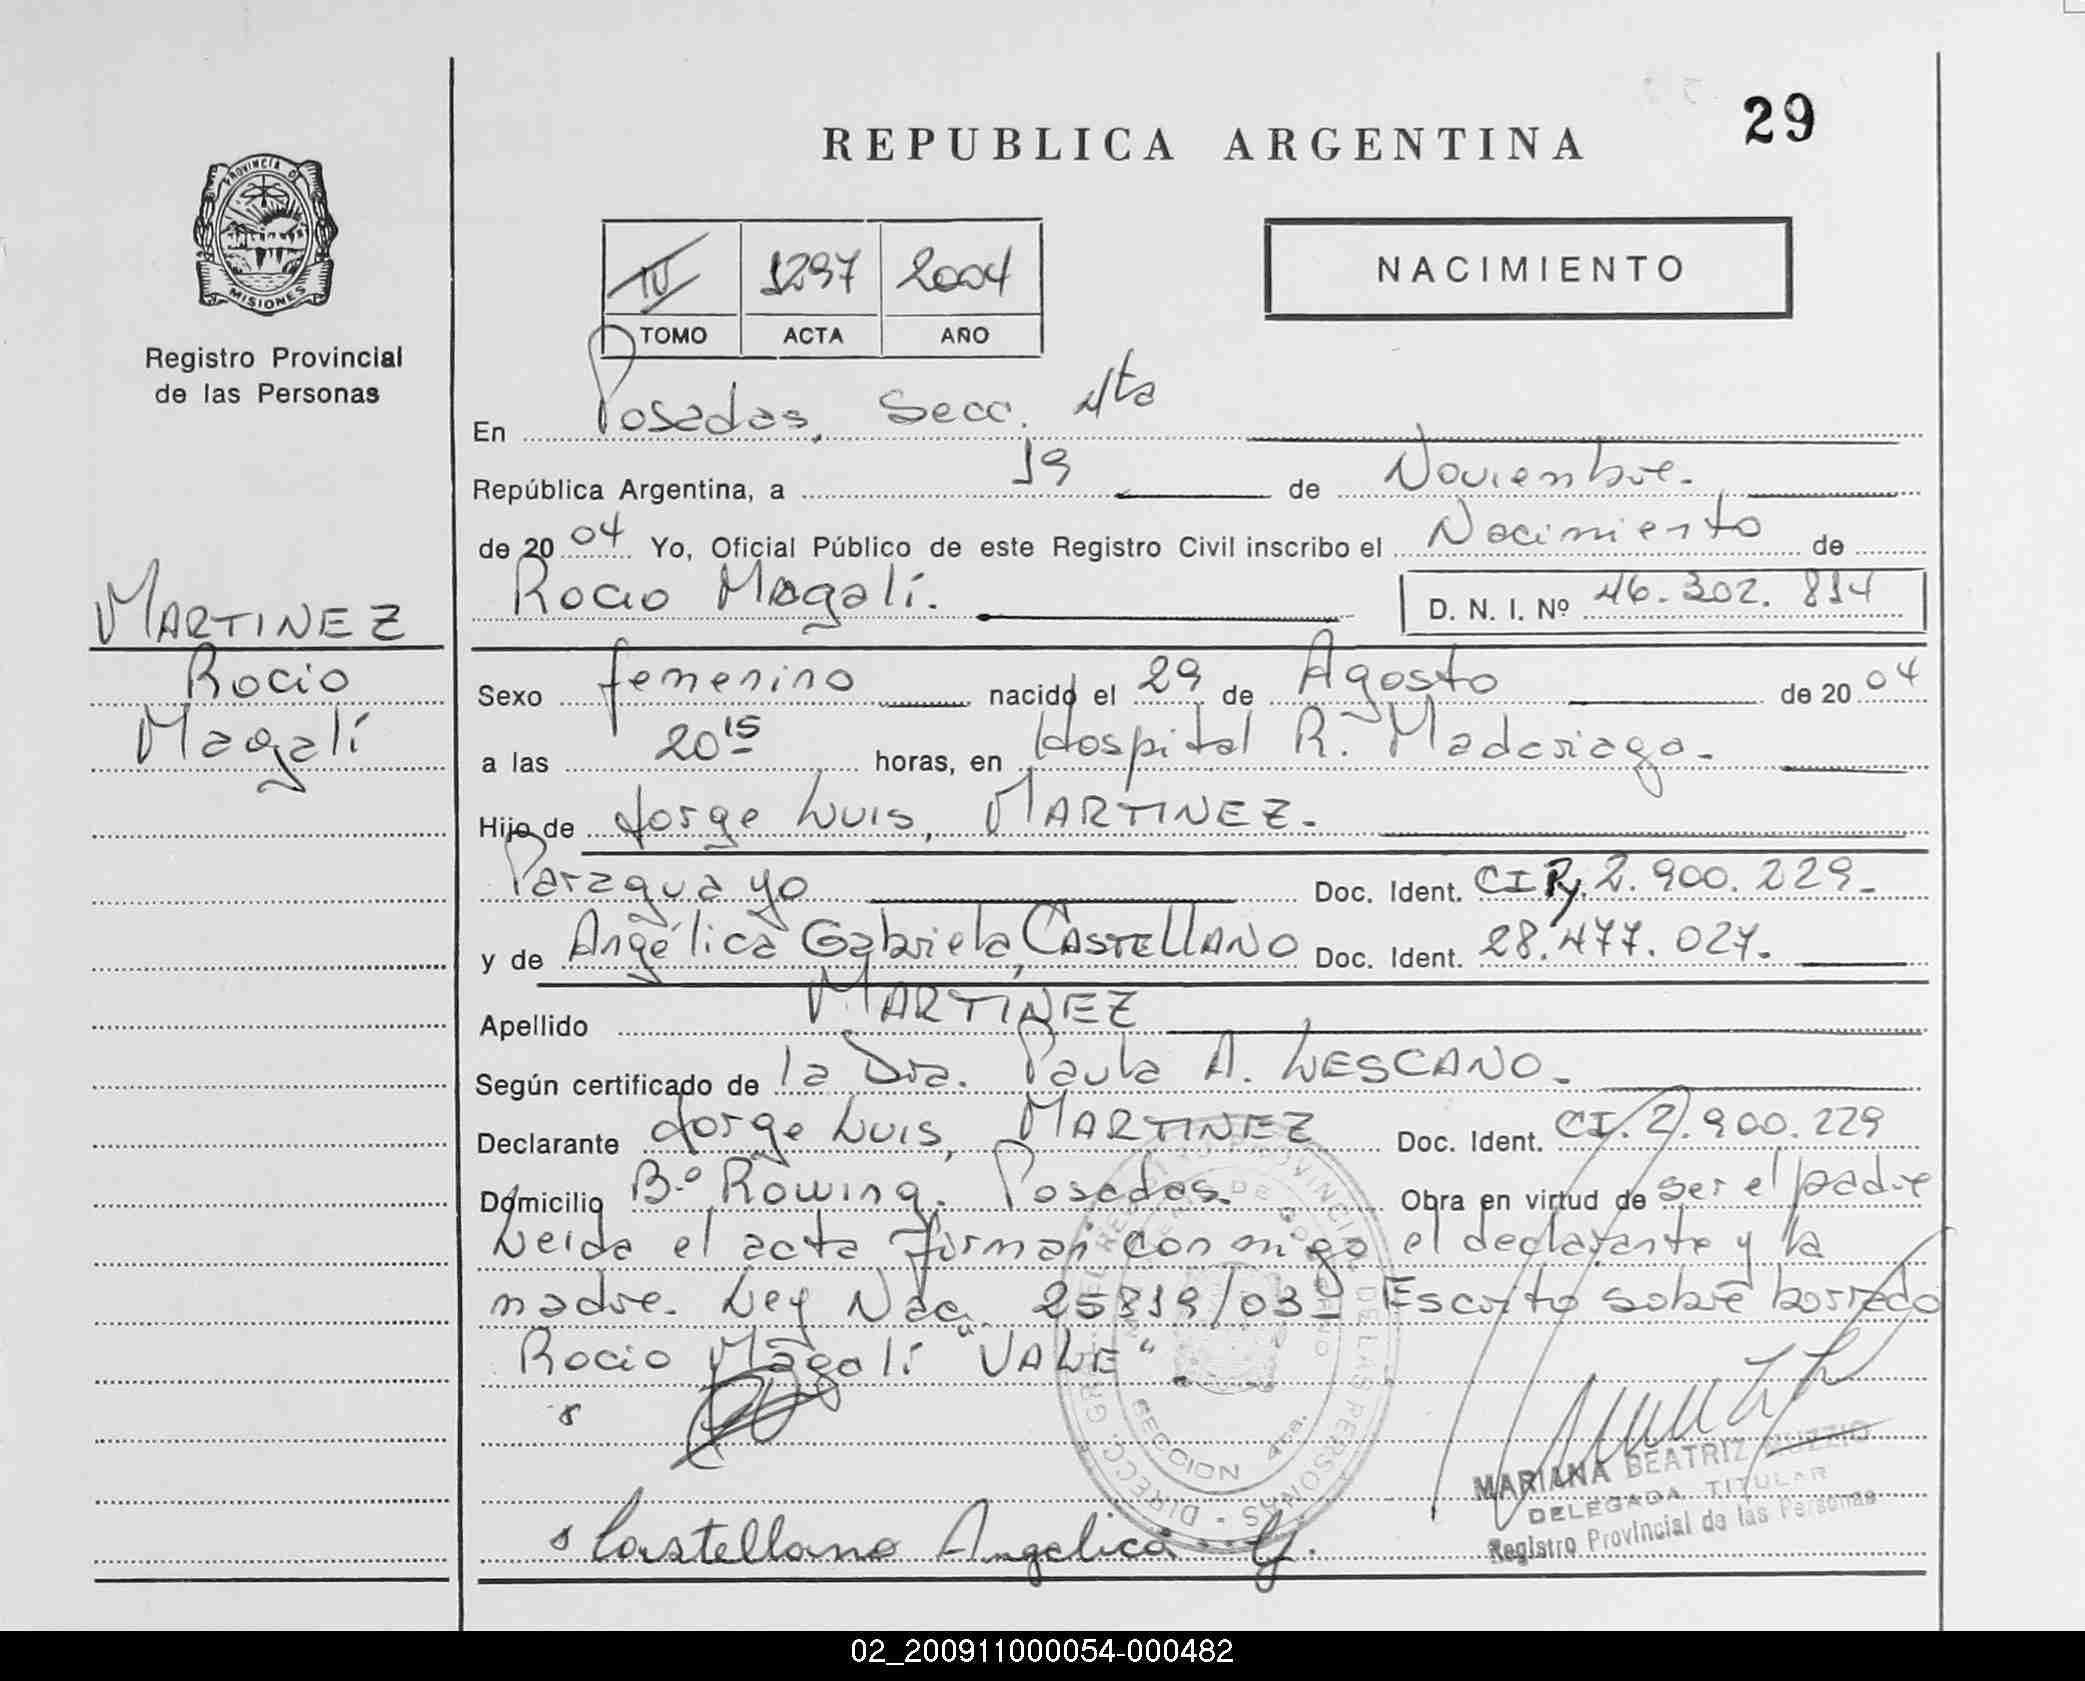 29
REPUBLICA ARGENTINA
PROVINCIA DE
MISIONES
Registro Provincial
de las Personas
NACIMIENTO
IV 1297 2004
TOMO ACTA AÑO
En Posadas, Secc. 4ta
República Argentina, a 19 de Noviembre.
de 2004 Yo, Oficial Público de este Registro Civil inscribo el Nacimiento de
Rocio Magalí. D. N. I. Nº 46.302.814
MARTINEZ
Rocio
Magalí
Sexo femenino nacido el 29 de Agosto de 2004
a las 20 15 horas, en Hospital R. Madariaga.
Hijo de Jorge Luis, MARTINEZ.
Paraguayo Doc. Ident. CI Py. 2.900.229.
y de Angélica Gabriela, CASTELLANO Doc. Ident. 28.477.027.
Apellido MARTINEZ
Según certificado de la Dra. Paula A. LESCANO.
Declarante Jorge Luis, MARTINEZ Doc. Ident. CI. 2.900.229
Domicilio Bº Rowing. Posadas. Obra en virtud de ser el padre
Leida el acta firman conmigo el declarante y la
madre. Ley Nac. 25819/03_ Escrito sobre borrado
Rocio Magalí "VALE"
SECCION 4ta.
MARIANA BEATRIZ MUZZIO
DELEGADA TITULAR
Registro Provincial de las Personas
Castellano Angelica G.
02_200911000054-000482